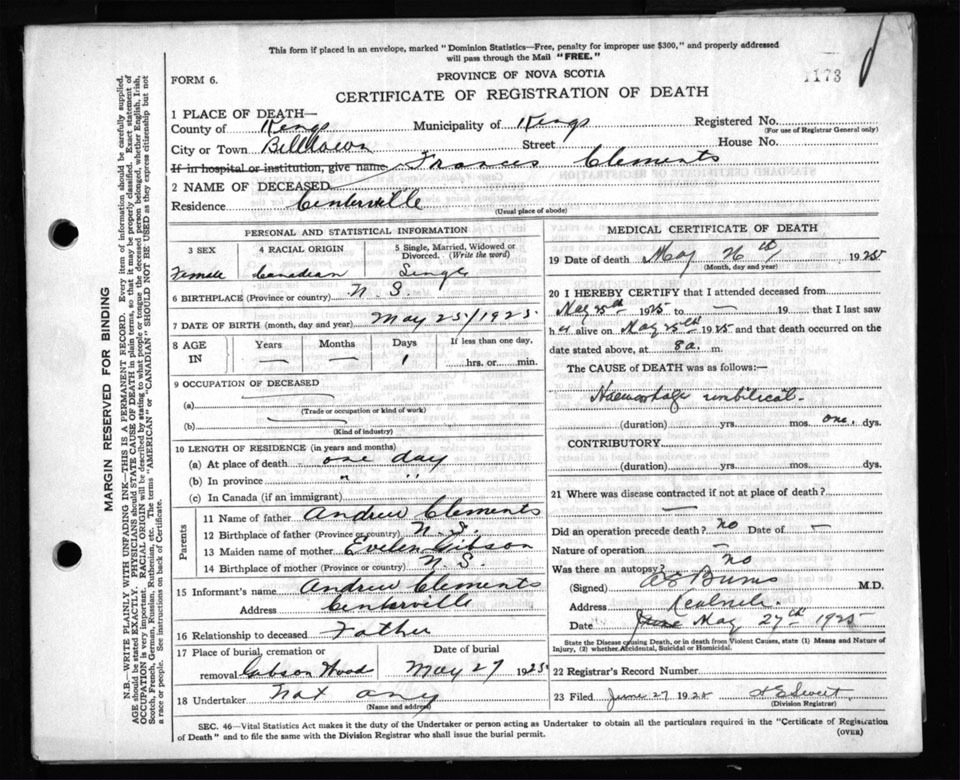 This form if placed in an envelope, marked "Dominion Statistics—Free, penalty for improper use $300," and properly addressed
will pass through the Mail "FREE."
FORM 6.
PROVINCE OF NOVA SCOTIA
1173
CERTIFICATE OF REGISTRATION OF DEATH
1 PLACE OF DEATH—
County of Kings Municipality of Kings Registered No.
(For use of Registrar General only)
City or Town Billtown Street House No.
If in hospital or institution, give name Frances Clements
2 NAME OF DECEASED
Residence Centerville
(Usual place of abode)
PERSONAL AND STATISTICAL INFORMATION
3 SEX 4 RACIAL ORIGIN 5 Single, Married, Widowed or Divorced. (Write the word)
Female Canadian Single
6 BIRTHPLACE (Province or country) N. S.
7 DATE OF BIRTH (month, day and year) May 25/1925.
8 AGE IN Years Months Days If less than one day.
— — 1 hrs. or min.
9 OCCUPATION OF DECEASED
(a)
(Trade or occupation or kind of work)
(b)
(Kind of industry)
10 LENGTH OF RESIDENCE (in years and months)
(a) At place of death one day
(b) In province " "
(c) In Canada (if an immigrant)
Parents
11 Name of father Andrew Clements
12 Birthplace of father (Province or country) N. S.
13 Maiden name of mother Evelen Gibson
14 Birthplace of mother (Province or country) N. S.
15 Informant's name Andrew Clements
Address Centerville
16 Relationship to deceased Father
17 Place of burial, cremation or Date of burial
removal Gibson Wood May 27 1925
18 Undertaker Not any
(Name and address)
MEDICAL CERTIFICATE OF DEATH
19 Date of death May 26th 1925
(Month, day and year)
20 I HEREBY CERTIFY that I attended deceased from
May 25th 1925 to — 19 that I last saw
her alive on May 25th 1925 and that death occurred on the
date stated above, at 8 a. m.
The CAUSE of DEATH was as follows:—
Haemorhage umbilical
(duration) yrs. mos. one. dys.
CONTRIBUTORY
(duration) yrs. mos. dys.
21 Where was disease contracted if not at place of death?
—
Did an operation precede death? no Date of —
Nature of operation —
Was there an autopsy? no
(Signed) M.D.
Address
Date June May 27th 1925
State the Disease causing Death, or in death from Violent Causes, state (1) Means and Nature of
Injury, (2) whether Accidental, Suicidal or Homicidal.
22 Registrar's Record Number
23 Filed June 27 1925
(Division Registrar)
SEC. 46—Vital Statistics Act makes it the duty of the Undertaker or person acting as Undertaker to obtain all the particulars required in the "Certificate of Registration
of Death" and to file the same with the Division Registrar who shall issue the burial permit.
(OVER)
MARGIN RESERVED FOR BINDING
N.B.—WRITE PLAINLY WITH UNFADING INK—THIS IS A PERMANENT RECORD. Every item of information should be carefully supplied.
AGE should be stated EXACTLY. PHYSICIANS should STATE CAUSE OF DEATH in plain terms, so that it may be properly classified. Exact statement of
OCCUPATION is very important. RACIAL ORIGIN will be described by stating to what people or tongue the deceased person belonged, whether English, Irish,
Scotch, French, German, Russian, Ruthenian, etc. The terms "AMERICAN" or "CANADIAN" SHOULD NOT BE USED as they express citizenship but not
a race or people. See instructions on back of Certificate.